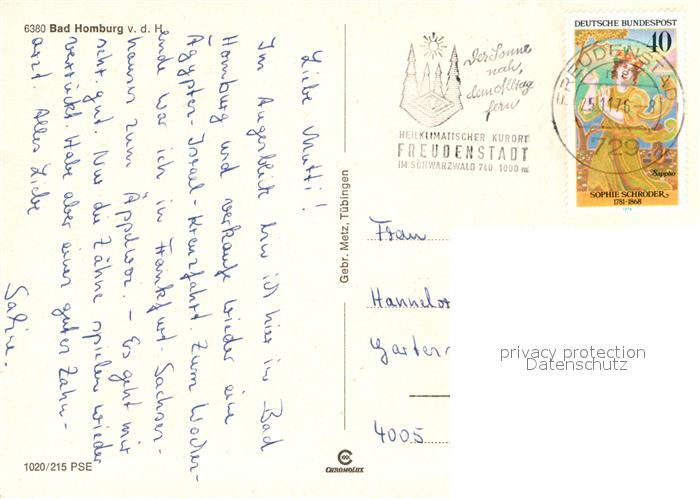 6380 Bad Homburg v. d. H.
Liebe Mutti!
Im Augenblick bin ich hier in Bad
Homburg und verkaufe wieder eine
Ägypten-Israel-Kreuzfahrt. Zum Wochen-
ende war ich in Frankfurt-Sachsen-
hausen zum Äppelwoi. - Es geht mir
sehr gut. Nur die Zähne spielen wieder
verrückt. Habe aber einen guten Zahn-
arzt. Alles Liebe
Sabine.
1020/215 PSE
Gebr. Metz, Tübingen
CHROMOLUX
Der Sonne
nah,
dem Alltag
fern
HEILKLIMATISCHER KURORT
FREUDENSTADT
IM SCHWARZWALD 740-1000 m
FREUDENSTADT
25.11.76-8
729
DEUTSCHE BUNDESPOST
40
Sappho
SOPHIE SCHRÖDER
1781-1868
1976
Frau
Hannelo
Garten
4005
privacy protection
Datenschutz